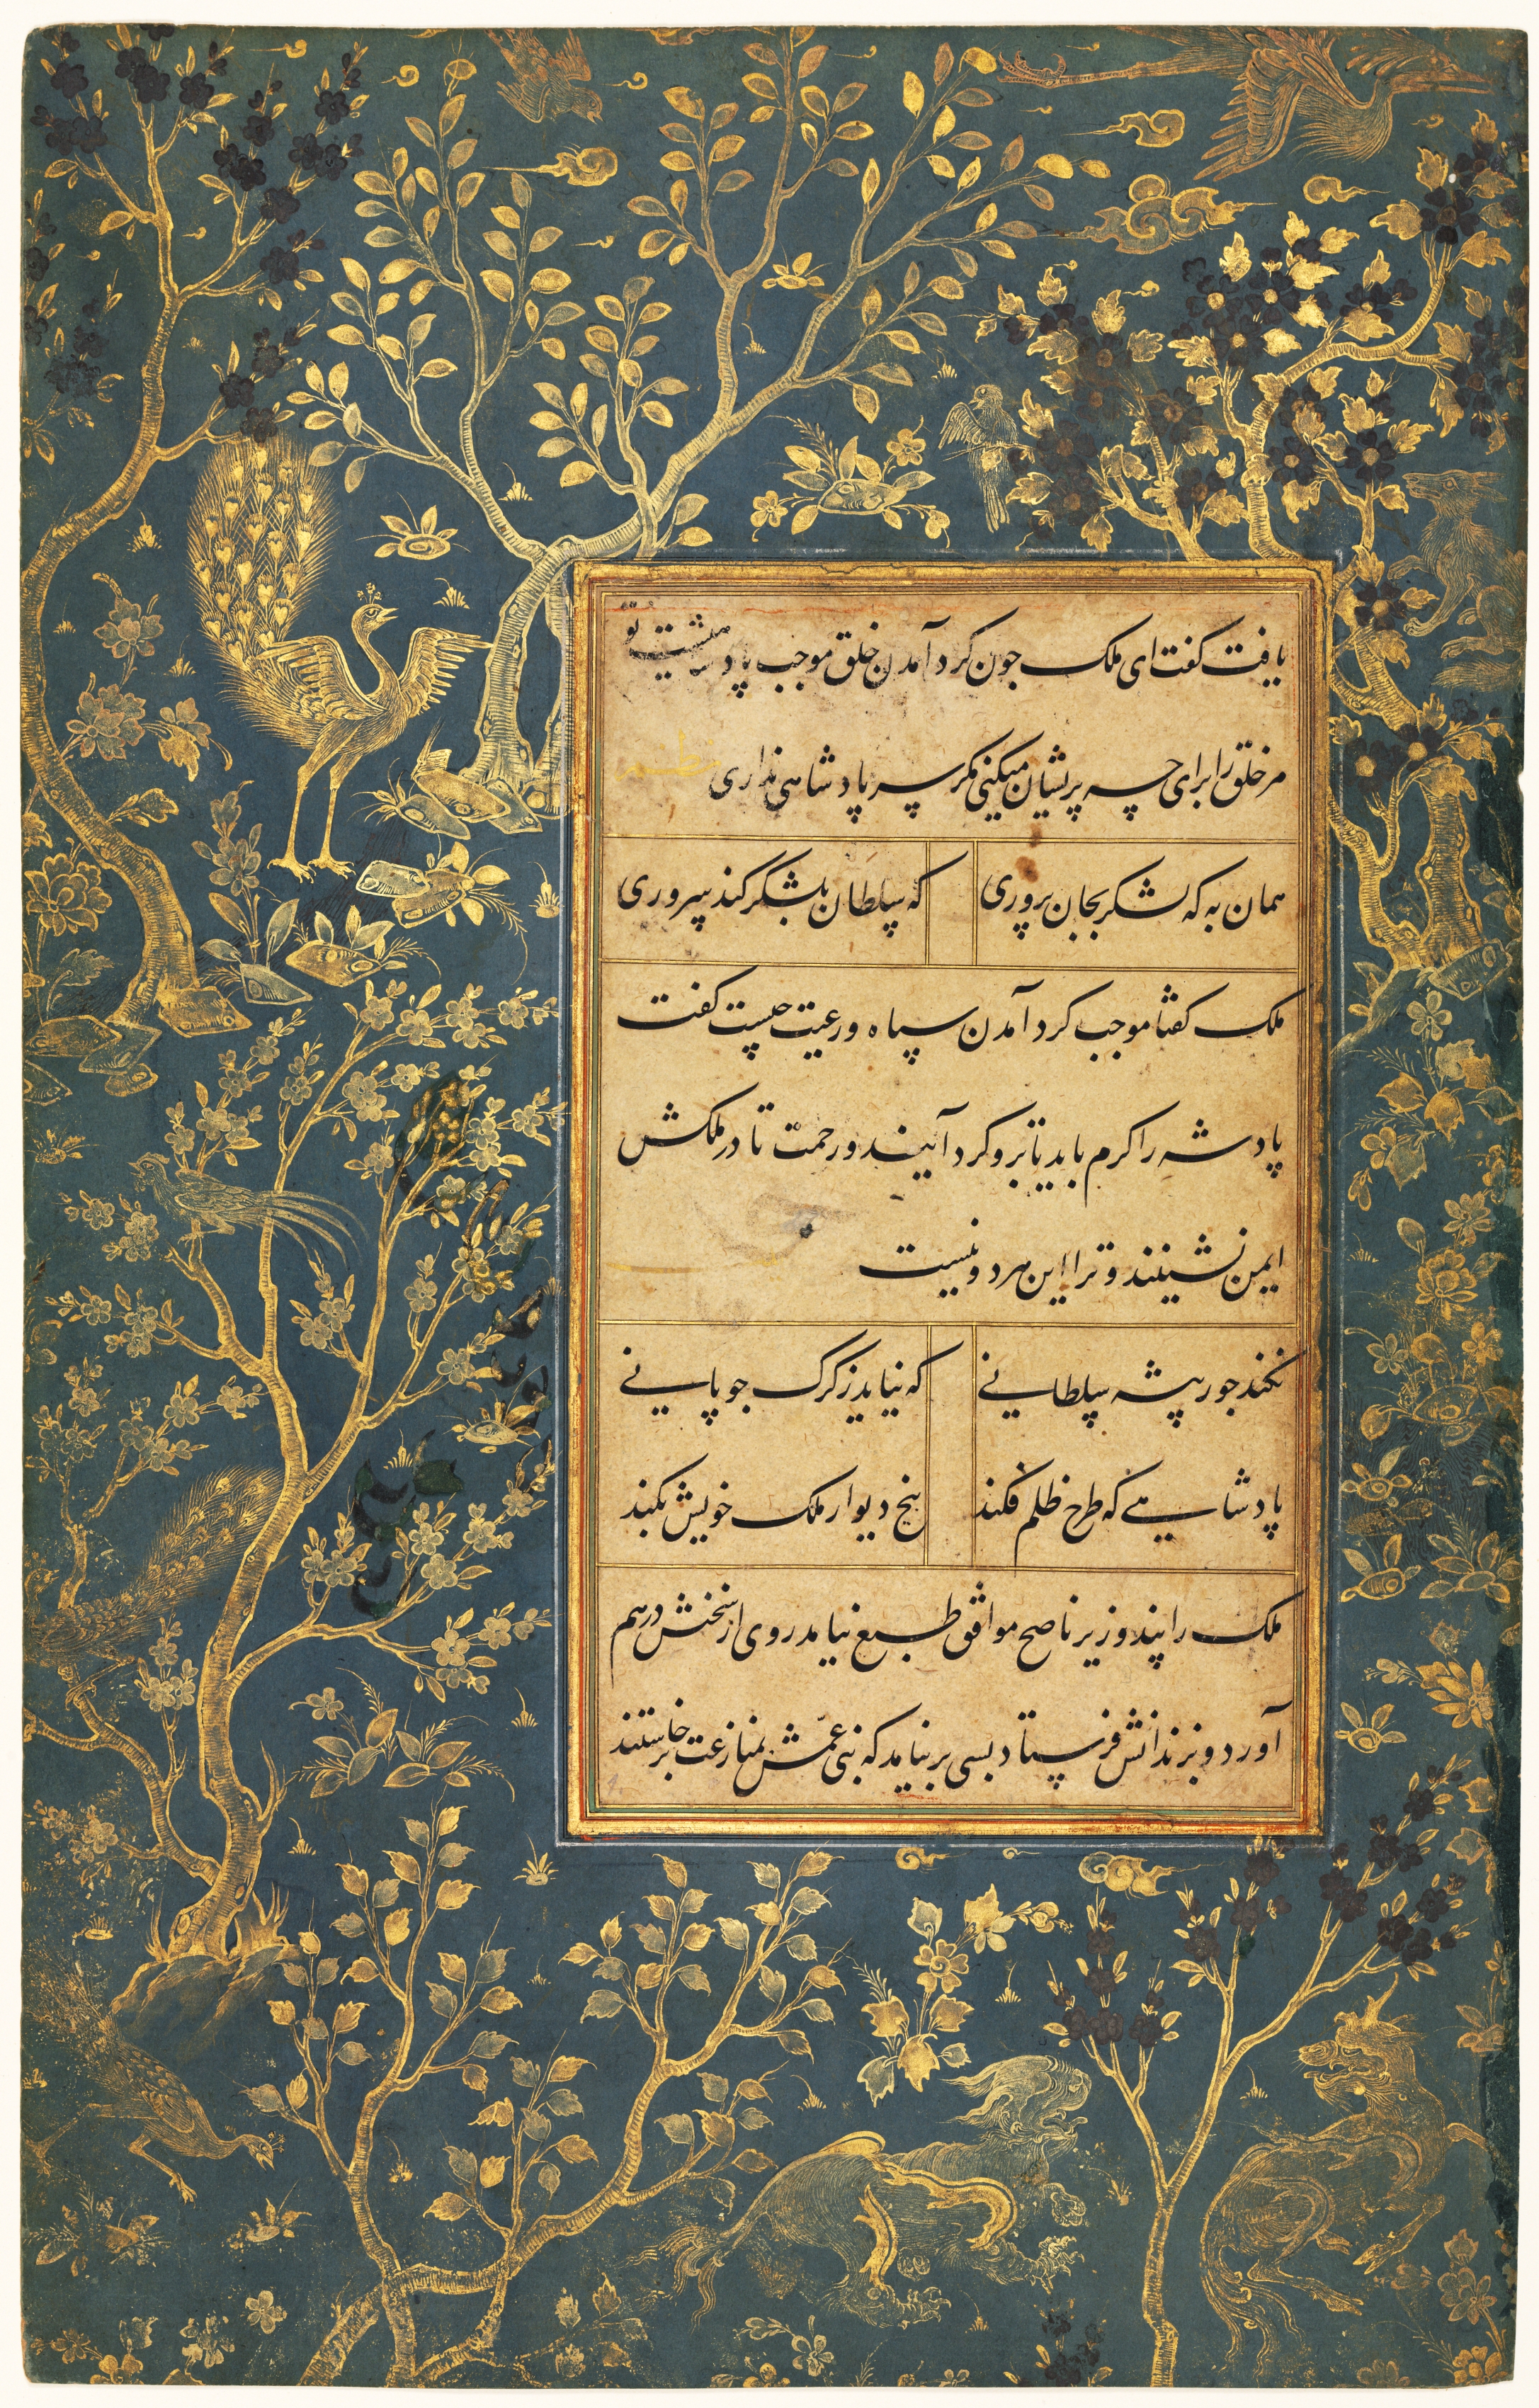 یافت کفت ای ملک جون کرد آمدن خلق موجب پادشاهیست تو
مر خلق را برای چه پریشان میکنی مکر سر پادشاهی نداری نظم
همان به که لشکر بجان پروری که سلطان بلشکر کند سروری
ملک کفتا موجب کرد آمدن سپاه و رعیت چیست کفت
پادشه را کرم باید تا برو کرد آیند و رحمت تا در ملکش
ایمن نشینند و ترا این هر دو نیست
نکند جور پیشه سلطانی که نیاید ز کرک جوپانی
پادشاهی که طرح ظلم فکند بیخ دیوار ملک خویش بکند
ملک را پند وزیر ناصح موافق طبع نیامد روی از سخنش درهم
آورد و بزندانش فرستاد بسی برنیامد که بنی عمش بمنازعت برخاستند